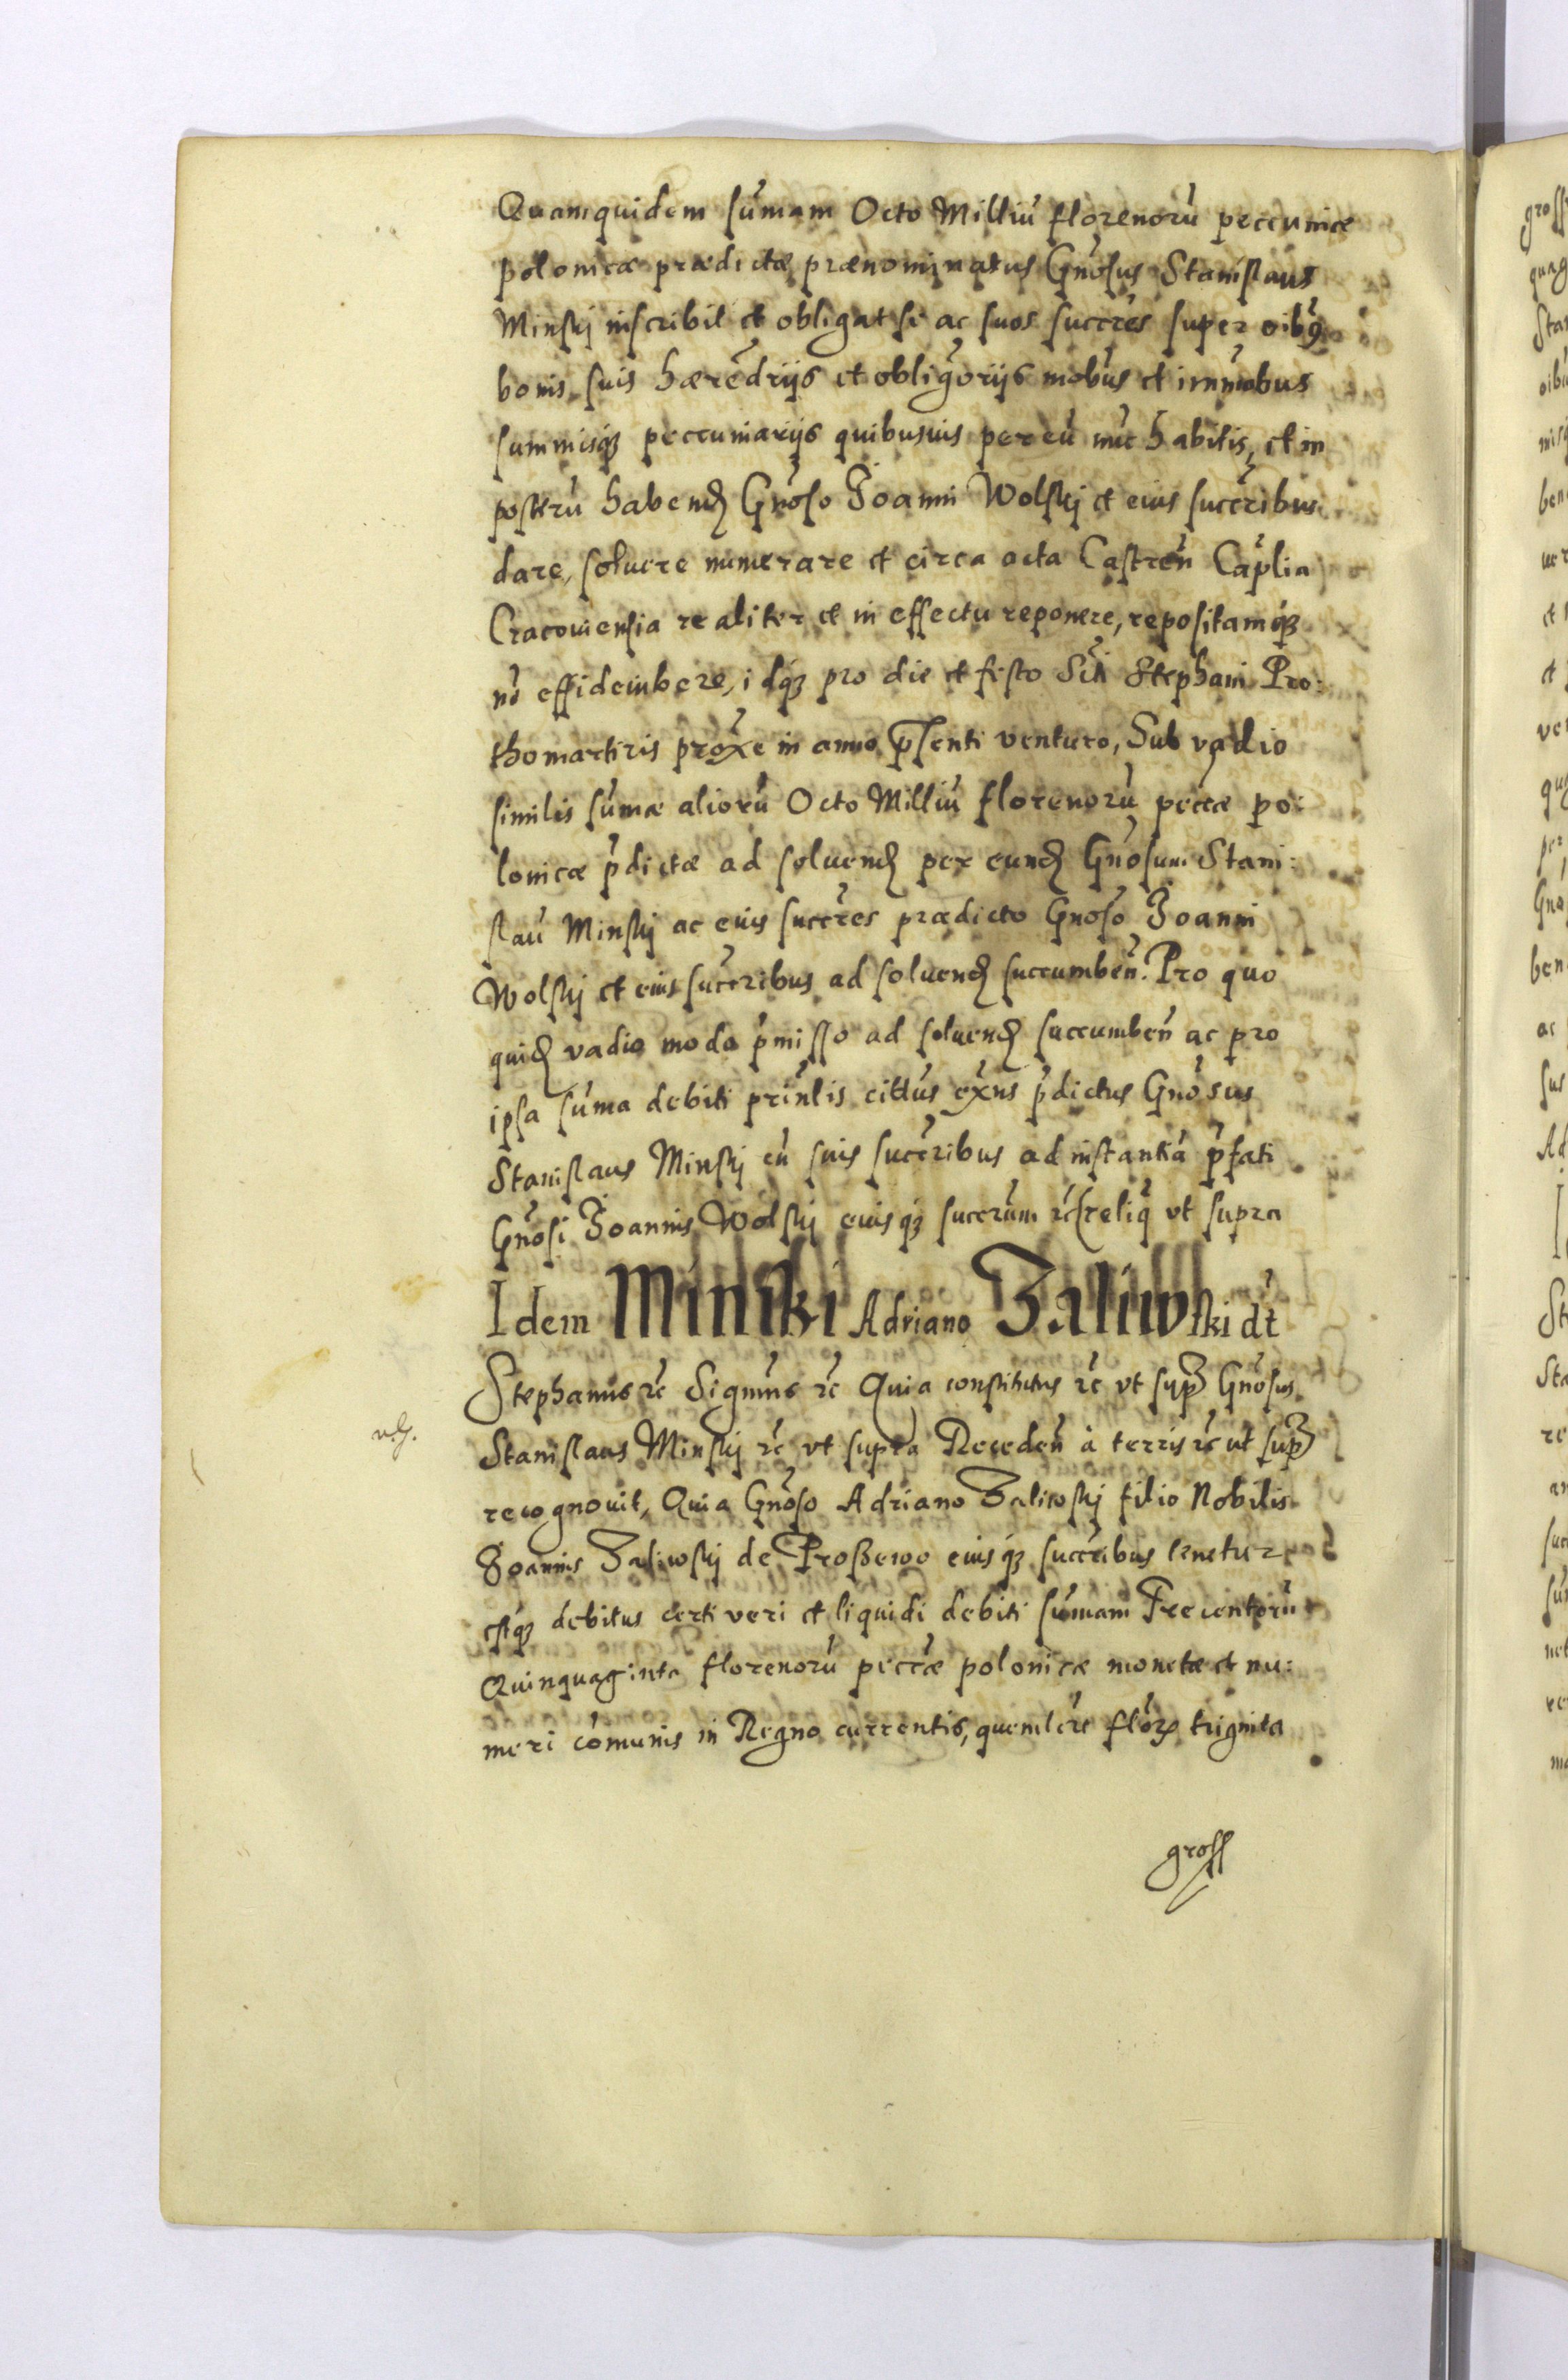 Quamquidem sum̃am Octo Milliũ florenorũ peccuniæ
polonicæ prædictæ prænominatus Gnõsus Stanislaus
Minskj inscribit et obligat se ac suos succr̃es super oĩbq
bonis suis hærẽdrijs et obligõrijs mobũs et immobũs
summisq̃ peccuniarijs quibusuis per eũ nũc habitis, et in
posterũ habend̃ Gnõso Joanni Wolskj et eius succr̃ibus
dare, soluere numerare et circa acta Castreñ Cap̃lia
Cracouiensia realiter et in effectu reponere, repositamq̃
nõ effidembere, idq̃ pro die et festo S̃ci Stephani Pro:
thomartiris prox̃e in anno p̃senti venturo, Sub vadio
similis sum̃æ aliorũ Octo Milliũ florenorũ pecc̃æ po:
lonicæ p̃dictæ ad soluend̃ per eund̃ Gnõsum Stani:
slaũ Minskj ac eius succr̃es prædicto Gnõso Joanni
Wolskj et eius succr̃ibus ad soluend̃ succumbeñ. Pro quo
quid̃ vadio modo p̃misso ad soluend̃ succumbeñ ac pro
ipsa sum̃a debiti prinl̃is citt̃us ex̃ns p̃dictus Gnõsus
Stanislaus Minskj cũ suis succr̃ibus ad instantiã p̃fati
Gnõsi Joannis Wolskj eiusq̃ succr̃um rc̃ reliq̃ vt supra
Idem Minski Adriano Zaliwski dt̃
Stephanus rc̃ Signm̃s rc̃ Quia constitutus rc̃ vt sup̃ Gnõsus
Stanislaus Minskj rc̃ vt supra Recedeñ à terris rc̃ ut sup̃
recognouit, Quia Gnõso Adriano Zaliwskj filio Nobilis
Joannis Zaliwskj de Proßewo eiusq̃ succr̃ibus tenetur
estq̃ debitus certi veri et liquidi debiti sum̃am Trecentorũ
Quinquaginta florenorũ pecc̃æ polonicæ monetæ et nu:
meri com̃unis in Regno currentis, quemlib̃t flõr̃ triginta
gross